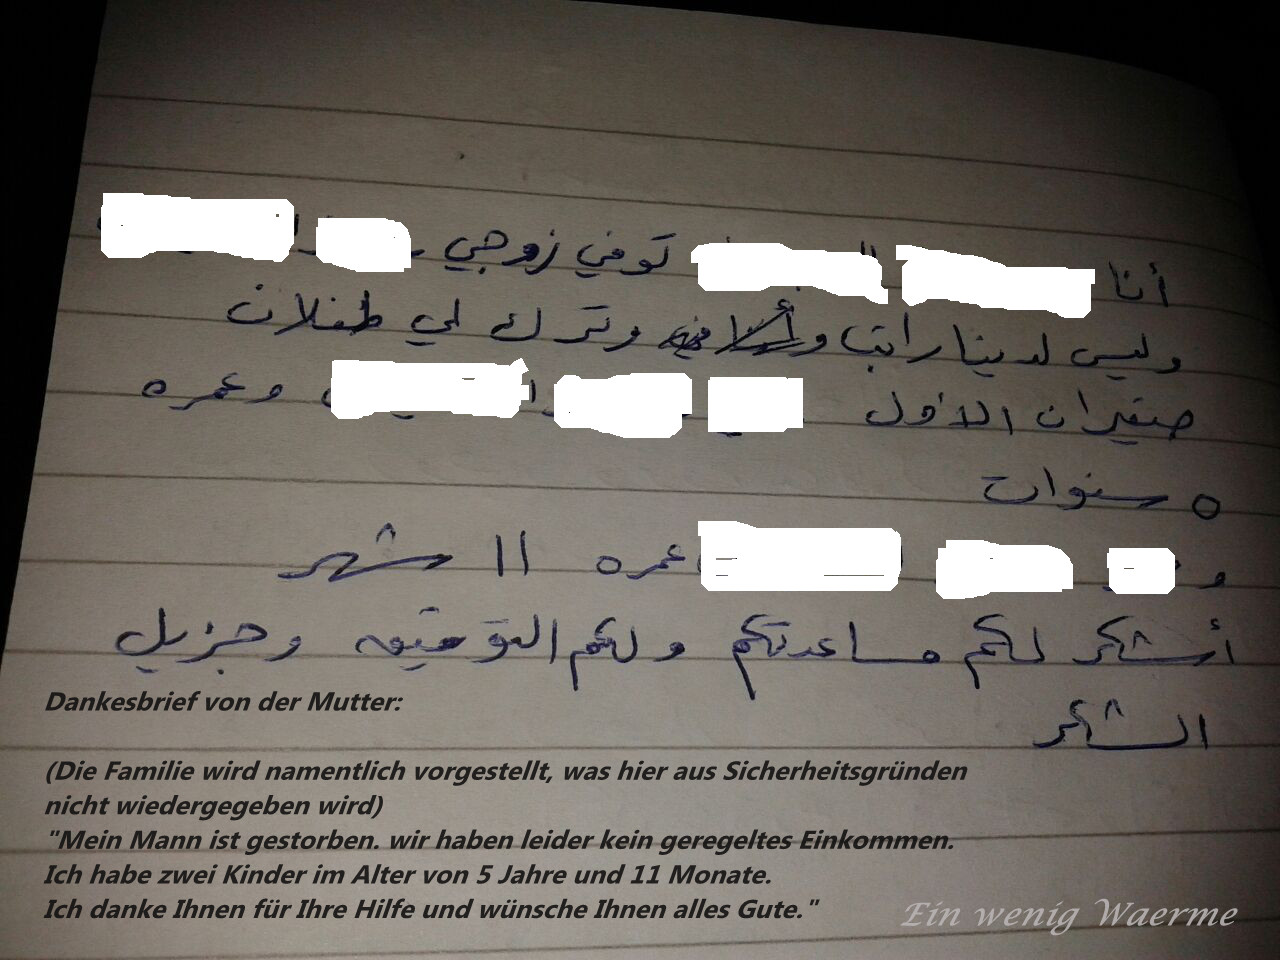 أنا توفي زوجي
وليس لدينا راتب وترك لي طفلان
صغيران الأول وعمره
٥ سنوات
و عمره ١١ شهر
أشكر لكم مساعدتكم ولكم التوفيق وجزيل
الشكر
Dankesbrief von der Mutter:
(Die Familie wird namentlich vorgestellt, was hier aus Sicherheitsgründen
nicht wiedergegeben wird)
"Mein Mann ist gestorben. wir haben leider kein geregeltes Einkommen.
Ich habe zwei Kinder im Alter von 5 Jahre und 11 Monate.
Ich danke Ihnen für Ihre Hilfe und wünsche Ihnen alles Gute."
Ein wenig Waerme